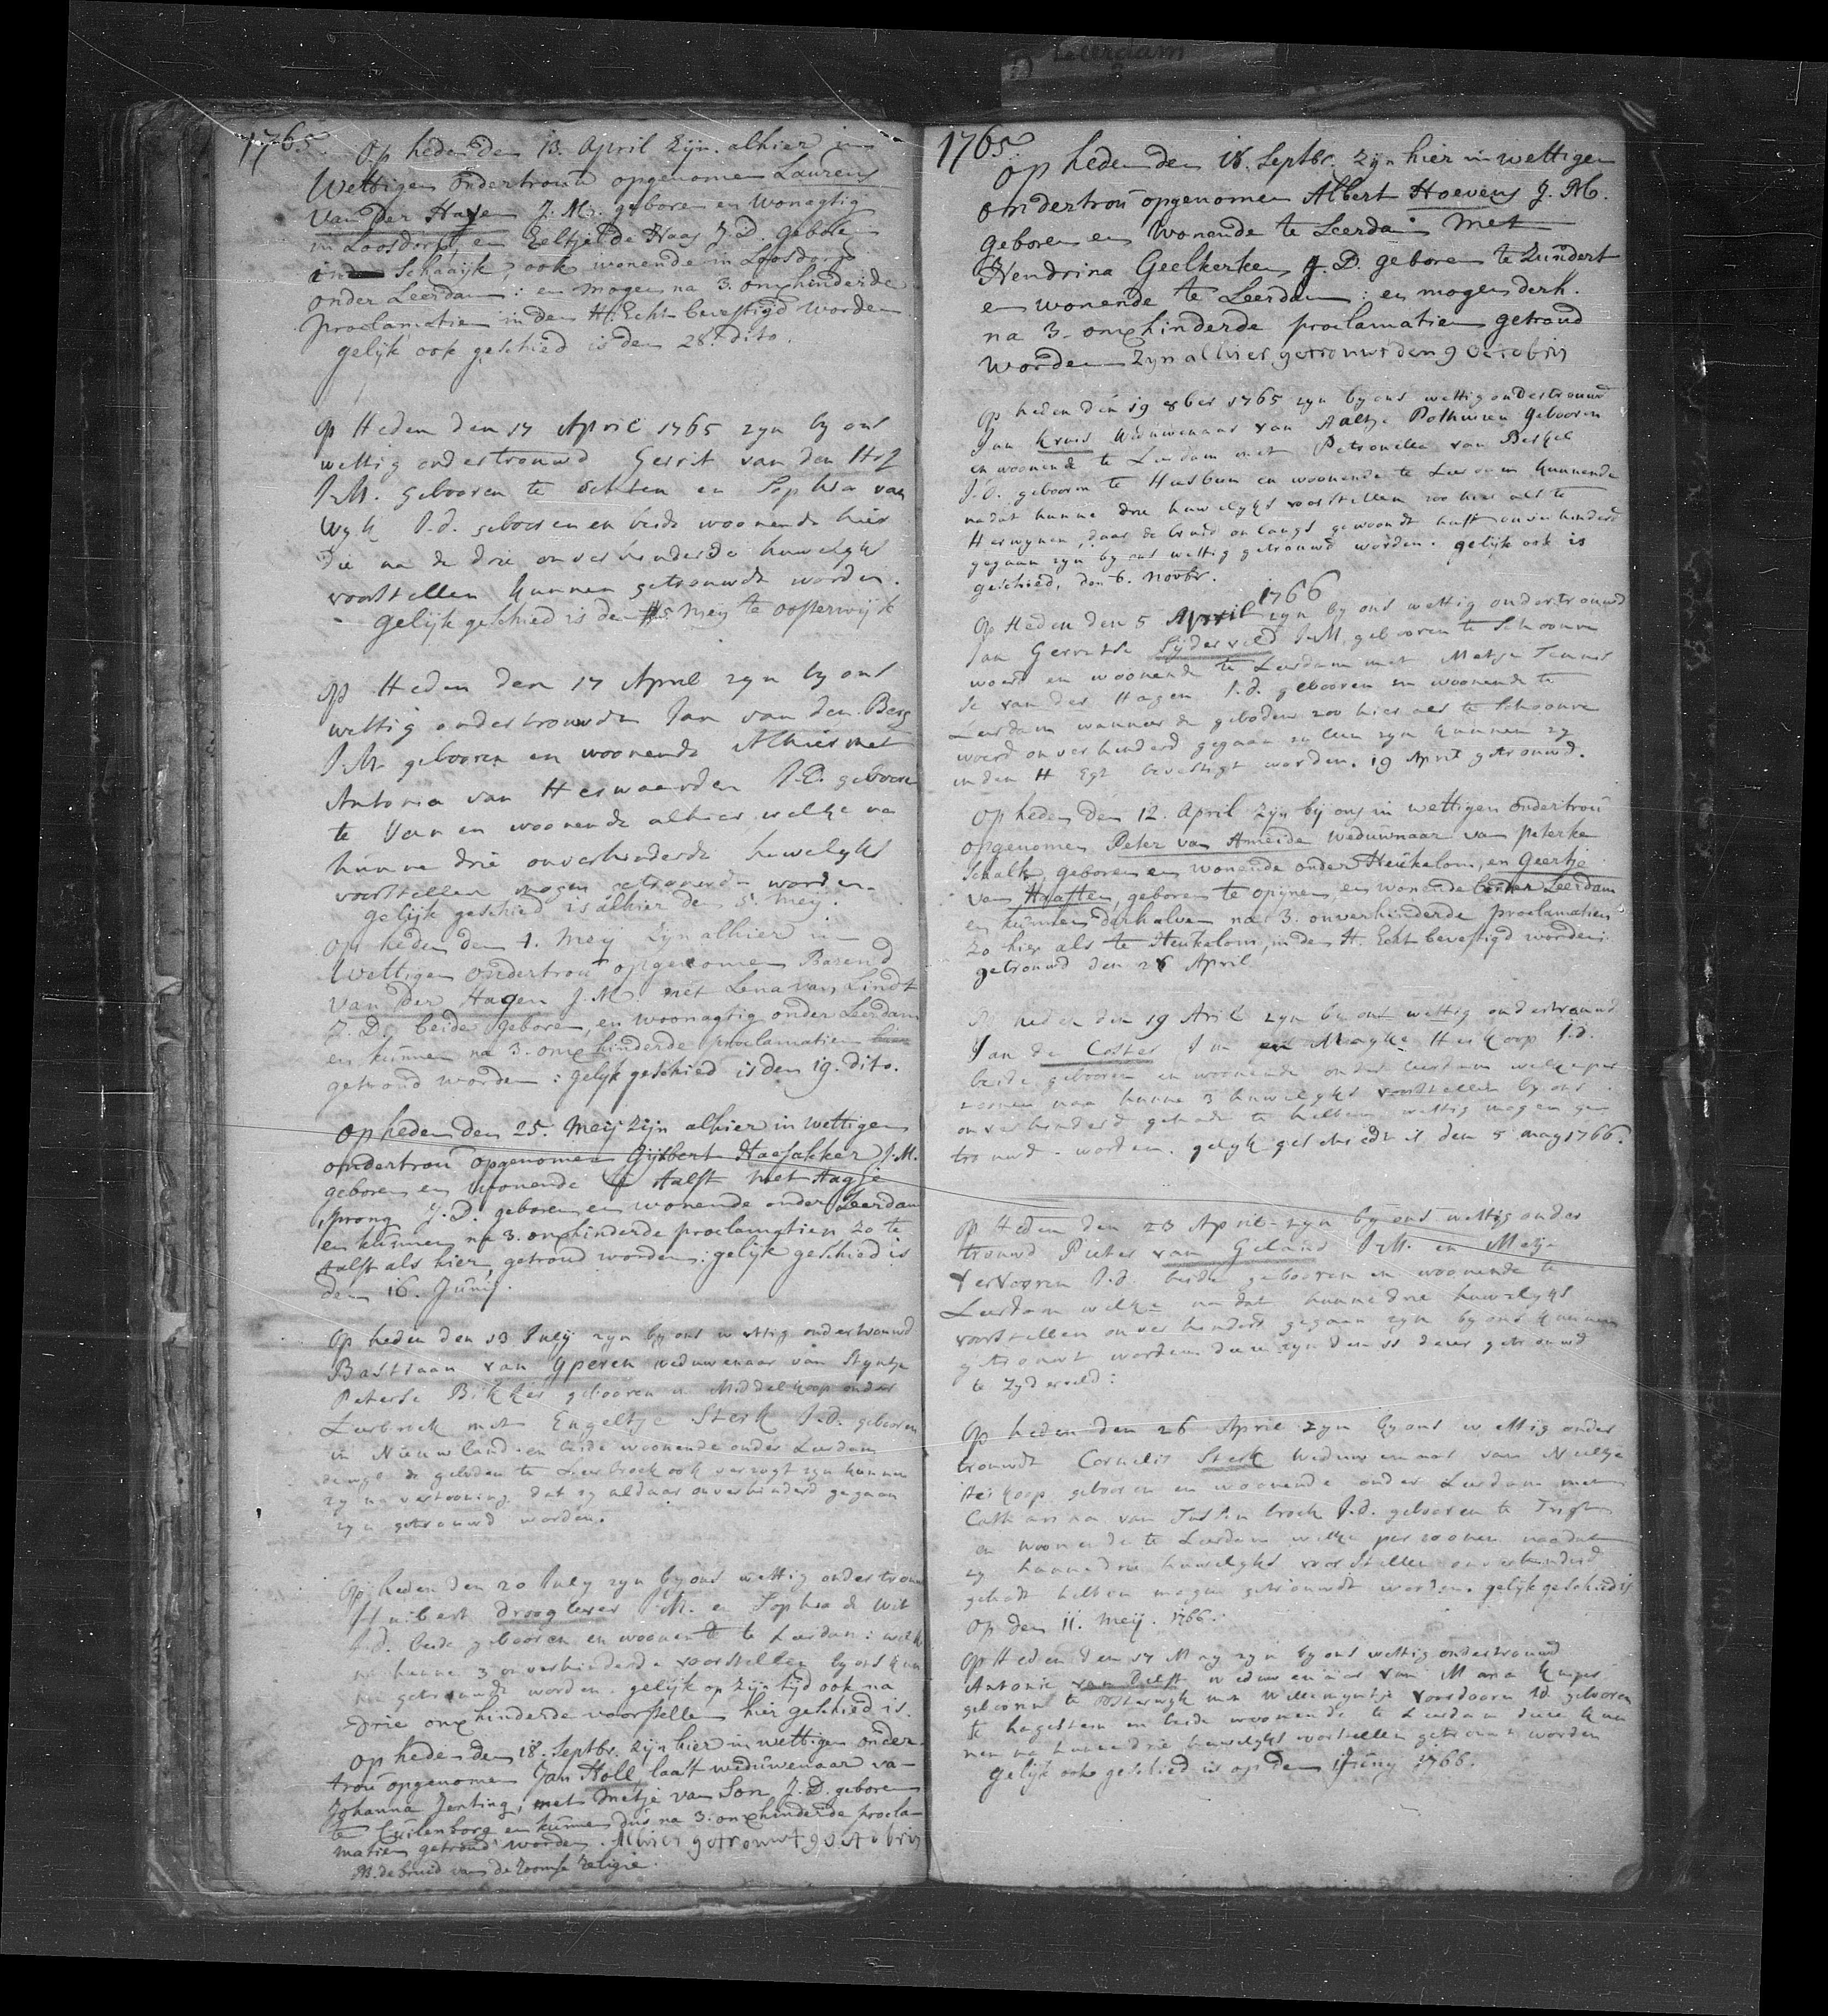 Leerdam
1765.
Op heden den 13. April zijn alhier in
Wettigen ondertrouw opgenomen Laurens
van der Hagen J. M. geboren en Wonagtig
in Loosdorp, en Eeltje de Haas J. D. geboren
in Schaaijk, ook wonende in Loosdorp
onder Leerdam: en mogen na 3. onverhinderde
proclamatien in den H. Echt bevestigd worden
gelijk ook geschied is den 28. dito.
Op Heden den 17 April 1765 zyn by ons
wettig ondertrouwd Gerrit van den Hof
J.M. gebooren te Echten en Sophia van
Wyk J.d. gebooren en beide woonende hier
die na de drie onverhinderde huwelyks
voorstellen kunnen getrouwdt worden.
gelijk geschied is den 5 Meij te oosterwijk
Op Heden den 17 April zyn by ons
wettig ondertrouwdt Jan van den Berg
J.M. gebooren en woonende Alhier met
Antonia van Herwaarden J.D. gebooren
te en woonende alhier welke na
hunne drie onverhinderde huwelyks
voorstellen mogen getrouwd worden.
gelijk geschied is alhier den 5 Meij.
Op heden den 4. Meij zijn alhier in
Wettigen ondertrou opgenomen Barend
van der Hagen J. M. met Lena van Lindt
J. D. beide geboren, en woonagtig onder Leerdam
en kunnen na 3. onverhinderde proclamatien
getroud worden: gelijk geschied is den 19. dito.
Op heden den 25. Meij zijn alhier in wettigen
ondertrou opgenomen Gijsbert Haesakker J. M.
geboren en wonende te Aalst met Aagje
Sprong J. D. geboren en wonende onder Leerdam
en kunnen na 3. onverhinderde proclamatien zo te
Aalst als hier, getroud worden: gelijk geschied is
den 16. Junij.
Op heden den 13 July zyn by ons wettig ondertrouwd
Bastiaan van Yperen weduwenaar van Styntje
Peterse Bikker gebooren in Middelkoop onder
Leerbroek met Engeltje Sterk J.d. gebooren
in Nieuwland en beide woonende onder Leerdam
de geboden te Leerbroek ook verzogt zyn kunnen
zy na vertooning dat zy aldaar onverhinderd gegaan
zyn getrouwd worden.
Op heden den 20 July zyn by ons wettig ondertrouwd
Huibert Droogleever J.M. en Sophia de Wit
J.d. beide gebooren en woonende te Leerdam: welke
na hunne 3 onverhinderde voorstellen by ons kun
nen getrouwdt worden. gelijk op zijn tijd ook na
drie onverhinderde voorstellen hier geschied is.
Op heden den 18. Septbr. zijn hier in wettigen onder
trou opgenomen Jan Stoll laast weduwenaar va-
Johanna Jenting, met Metje van Son J. D. geboren
te Cuilenborg en kunnen dus na 3. onverhinderde procla-
matien getroud worden. Alhier getrouwt 9 octobris
NB. de bruid van de Roomse Religie.
1765
Op heden den 18. Septbr. zijn hier in wettigen
ondertrou opgenomen Albert Hoevens J. M.
Geboren en Wonende te Leerdam met
Hendrina Geelkerken J. D. geboren te Zundert
en wonende te Leerdam: en mogen derh.
na 3. onverhinderde proclamatien getroud
worden zyn alhier getrouwt den 9 octobris
Op heden den 19 8ber 1765 zyn by ons wettig ondertrouwd
Jan Kruis Weduwenaar van Aaltje Pothuisen gebooren
en woonende te Leerdam met Petronella van Berkel
J.d. gebooren te en woonende te Leerdam kunnende
nadat hunne drie huwelyks voorstellen zoo hier als te
Herwynen, daar de bruid onlangs gewoondt heeft onverhinderd
gegaan zyn by ons wettig getrouwd worden. gelijk ook is
geschied, den 6. Novbr.
1766
Op Heden den 5 April zyn by ons wettig ondertrouwd
Jan Gerritse Sijderveld J.M. gebooren te Schoonre
woerd en woonende te Leerdam met Metje Teunis
se van der Hagen J.d. gebooren en woonende te
Leerdam wanneer de geboden zoo hier als te Schoonre
woerd onverhinderd gegaan zullen zyn kunnen zy
in den H Egt bevestigt worden. 19 April getrouwd.
Op heden den 12. April zijn bij ons in wettigen ondertrou
opgenomen Peter van Ameide weduwnaar van Peterke
Schalk, geboren en wonende onder Heukelom, en Geertje
van Haaften, geboren te Opijnen, en wonende onder Leerdam
en kunnen derhalven na 3. onverhinderde proclamatien
zo hier als te Heukelom, in den H. Echt bevestigd worden
getrouwd den 28 April
Op heden den 19 Aril zyn by ons wettig ondertrouwd
Jan de Coster J M en Maayke Herkoop J.d.
beide gebooren en woonende onder Leerdam welke per
zoonen naa hunne 3 huwelyks voorstellen by ons
onverhinderd gehadt te hebben wettig mogen ge
trouwd worden. gelyk geschiedt is den 5 may 1766.
Op Heden den 23 April zyn by ons wettig onder
trouwd Pieter van Geland J.M. en Metje
Vervooren J.d. beide gebooren en woonende te
Leerdam welke na dat hunne drie huwelyks
voorstellen onverhinderd gegaan zyn by ons kunnen
getrouwt worden deese zyn den 11 deser getrouwd
te Zyderveld:
Op heden den 26 April zyn by ons wettig onder
trouwdt Cornelis Sterk Weduwenaar van Neeltje
Herkoop gebooren en woonende onder Leerdam met
Catharina van J.d. gebooren te Tright
en woonende te Leerdam welke perzoonen nadat
zy hunne drie huwelyks voorstellen onverhinderd
gehadt hebben mogen getrouwdt worden. gelijk geschied is
op den 11. Meij. 1766.
Op Heden den 17 May zyn by ons wettig ondertrouwd
Antonie van Delft Weduwenaar van Maria Kuiper
gebooren te Oosterwyk met Willemyntje Versdooren J.d. gebooren
te Hagestein en beide woonende te Leerdam deese kun
nen na hunne drie huwelyks voorstellen getrouwt worden
gelijk ook geschied is op den 1 Juny 1766.